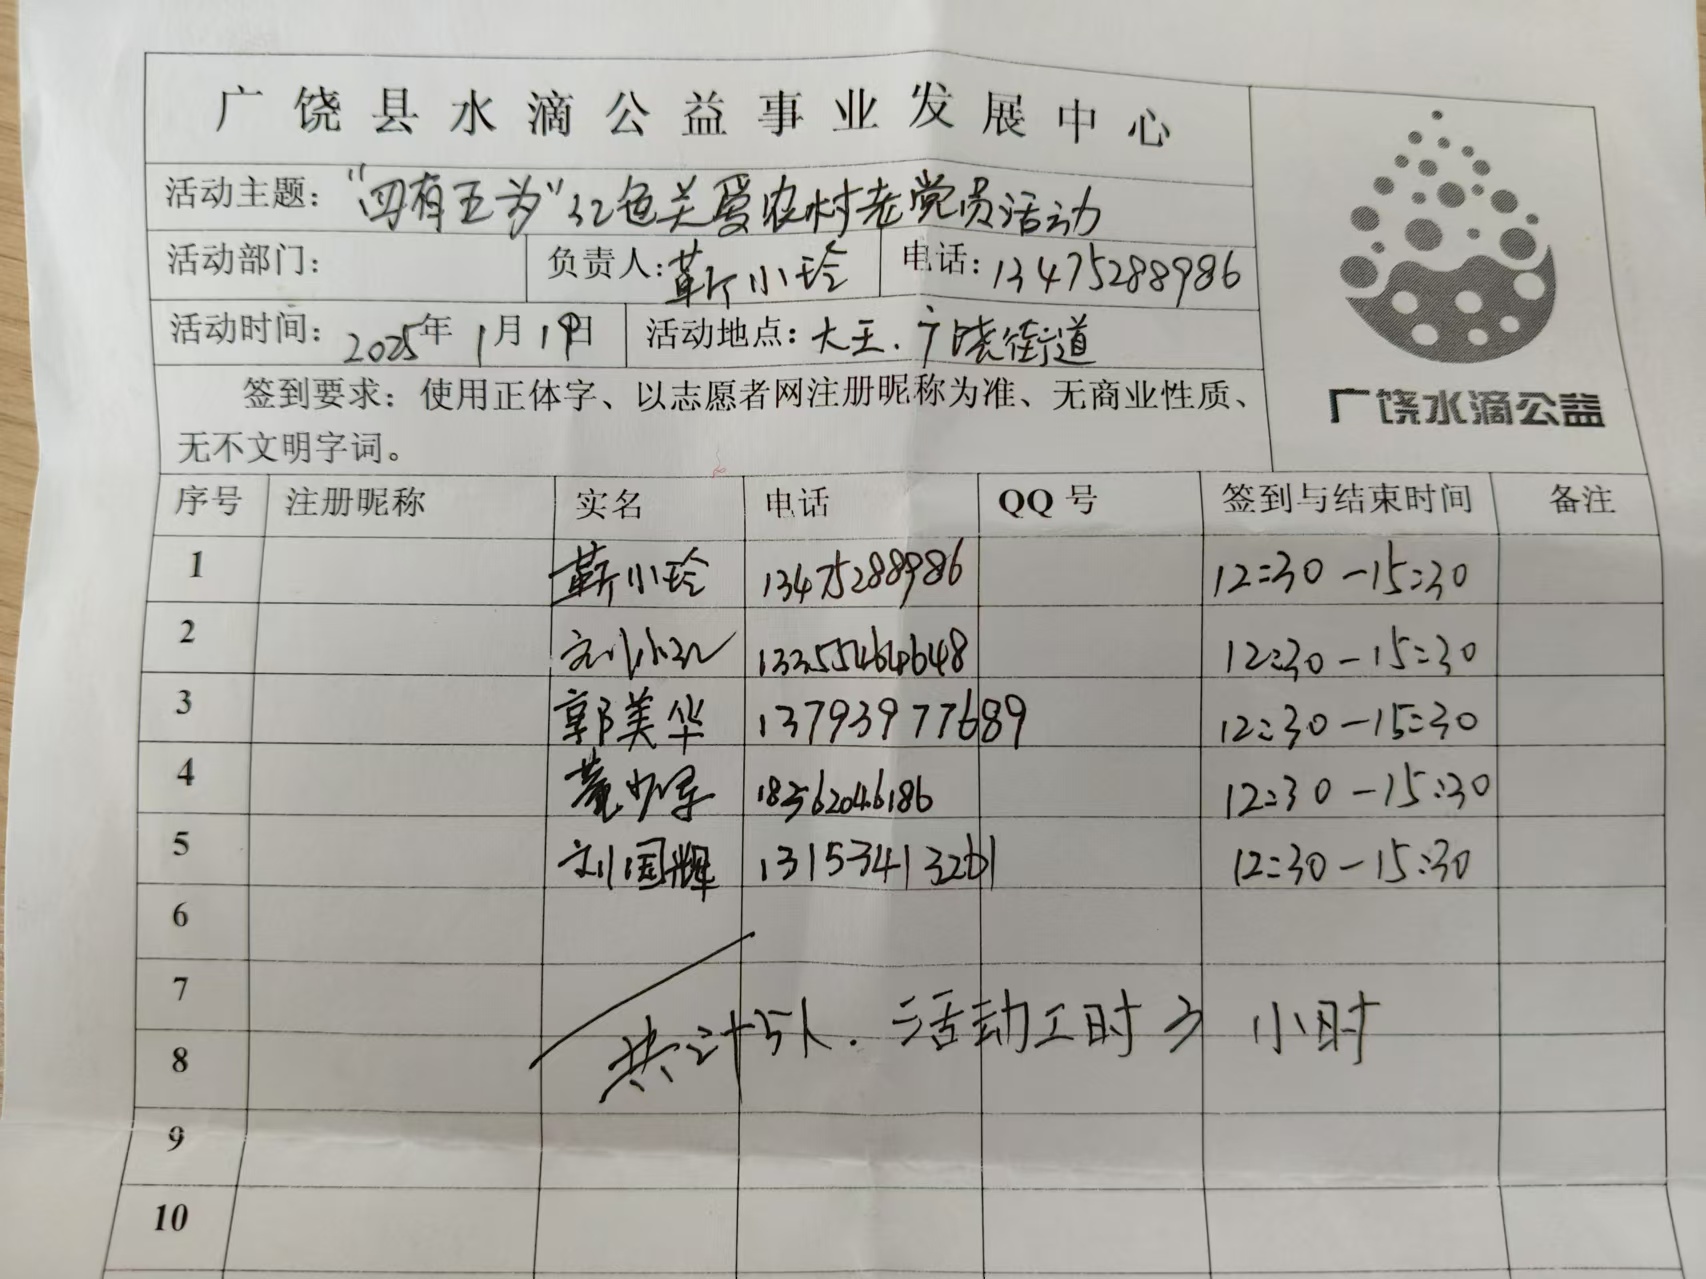 广饶县水滴公益事业发展中心
活动主题：“四有五为”红色关爱农村老党员活动
活动部门： 负责人：靳小玲 电话：13475288986
活动时间：2025年1月19日 活动地点：大王、广饶街道
签到要求：使用正体字、以志愿者网注册昵称为准、无商业性质、
无不文明字词。
广饶水滴公益
序号 注册昵称 实名 电话 QQ号 签到与结束时间 备注
1 靳小玲 13475288986 12:30-15:30
2 刘小红 13355464648 12:30-15:30
3 郭美华 13793977689 12:30-15:30
4 18562046186 12:30-15:30
5 刘国辉 13153413261 12:30-15:30
6
7
共计5人.活动工时3小时
8
9
10